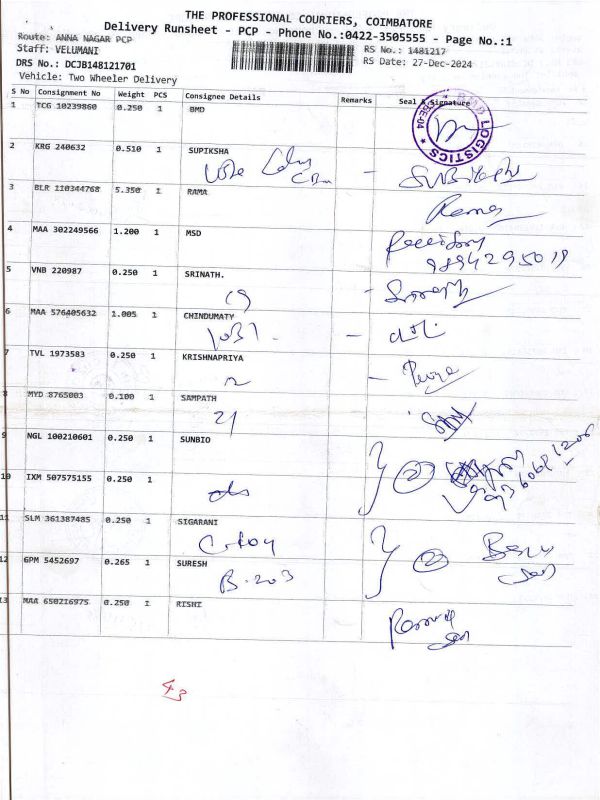 THE PROFESSIONAL COURIERS, COIMBATORE
Delivery Runsheet - PCP - Phone No.:0422-3505555 - Page No.:1
Route: ANNA NAGAR PCP
RS No.: 1481217
Staff: VELUMANI
RS Date: 27-Dec-2024
DRS No.: DCJB148121701
Vehicle: Two Wheeler Delivery
S No Consignment No Weight PCS Consignee Details Remarks Seal & Signature
1 TCG 10239860 0.250 1 BMD
LOGISTICS
CBE-04
2 KRG 240632 0.510 1 SUPIKSHA
3 BLR 110344768 5.350 1 RAMA
Rama
4 MAA 302249566 1.200 1 MSD
9894295019
5 VNB 220987 0.250 1 SRINATH.
19
6 MAA 576405632 1.005 1 CHINDUMATY
7 TVL 1973583 0.250 1 KRISHNAPRIYA
8 MYD 8765003 0.100 1 SAMPATH
21
9 NGL 100210601 0.250 1 SUNBIO
2
10 IXM 507575155 0.250 1
11 SLM 361387485 0.250 1 SIGARANI
2
12 GPM 5452697 0.265 1 SURESH
B-203
13 MAA 650216975 0.250 1 RISHI
43